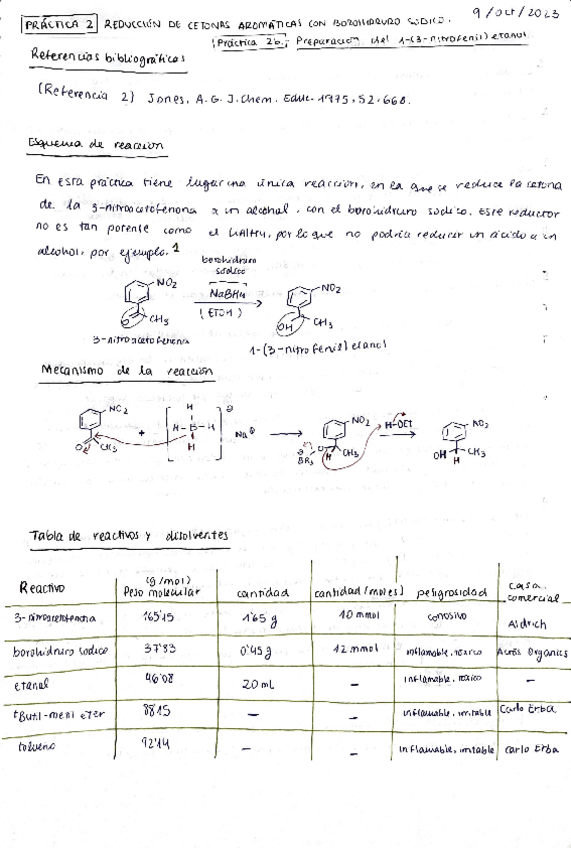 9/Oct/2023
PRÁCTICA 2 REDUCCIÓN DE CETONAS AROMÁTICAS CON BOROHIDRURO SÓDICO.
Práctica 2b: Preparación del 1-(3-nitrofenil)etanol
Referencias bibliográficas
(Referencia 2) Jones, A. G. J. Chem. Educ. 1975, 52, 668.
Esquema de reacción
En esta práctica tiene lugar una única reacción, en la que se reduce la cetona
de la 3-nitroacetofenona a un alcohol, con el borohidruro sódico. Este reductor
no es tan potente como el LiAlH4, por lo que no podría reducir un ácido a un
alcohol, por ejemplo. 1
borohidruro
sódico
NaBH4
(EtOH)
NO2
O
CH3
NO2
OH
CH3
3-nitroacetofenona
1-(3-nitrofenil)etanol
Mecanismo de la reacción
NO2
O
CH3
+
H
H-B-H
H
⊖
Na⊕
NO2
O
CH3
H
⊖
BR3
H-OEt
NO2
OH
CH3
H
Tabla de reactivos y disolventes
Reactivo (g/mol) Peso molecular cantidad cantidad (moles) peligrosidad casa comercial
3-nitroacetofenona 165'15 1'65 g 10 mmol corrosivo Aldrich
borohidruro sódico 37'83 0'45 g 12 mmol inflamable, tóxico Acros Organics
etanol 46'08 20 mL – inflamable, tóxico –
tButil-metil eter 88'15 – – inflamable, irritable Carlo Erba
tolueno 92'14 – – inflamable, irritable Carlo Erba